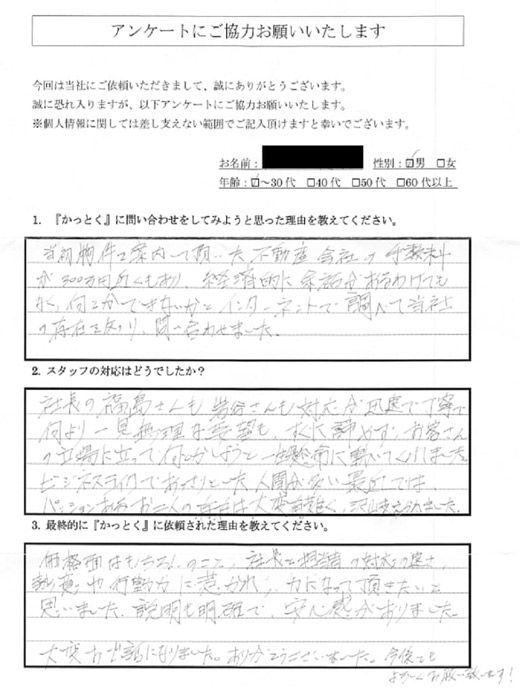 アンケートにご協力お願いいたします
今回は当社にご依頼いただきまして、誠にありがとうございます。
誠に恐れ入りますが、以下アンケートにご協力お願いいたします。
※個人情報に関しては差し支えない範囲でご記入頂けますと幸いでございます。
お名前: 性別:☑男 □女
年齢:☑～30代 □40代 □50代 □60代以上
1. 『かっとく』に問い合わせをしてみようと思った理由を教えてください。
当初物件を案内して頂いた不動産会社の手数料
が300万円近くもあり、経済的に余裕があるわけでも
なく、何とかできないかとインターネットで調べて当社
の存在を知り、問い合わせました。
2. スタッフの対応はどうでしたか?
社長の福島さんも岩谷さんも対応が迅速で丁寧で
何より一見無理な要望も、すぐに諦めず、お客さん
の立場に立って何とかしようと一生懸命に動いてくれました。
ビジネスライクであっさりとした人間が多い最近では、
パッションあるお二人の存在は大変有難く、沢山支えられました。
3. 最終的に『かっとく』に依頼された理由を教えてください。
価格面はもちろんのこと、社長と担当の対応の速さ、
熱意や行動力に惹かれ、力になって頂きたいと
思いました。説明も明確で、安心感がありました。
大変お世話になりました。ありがとうございました。今後とも
よろしくお願い致します!